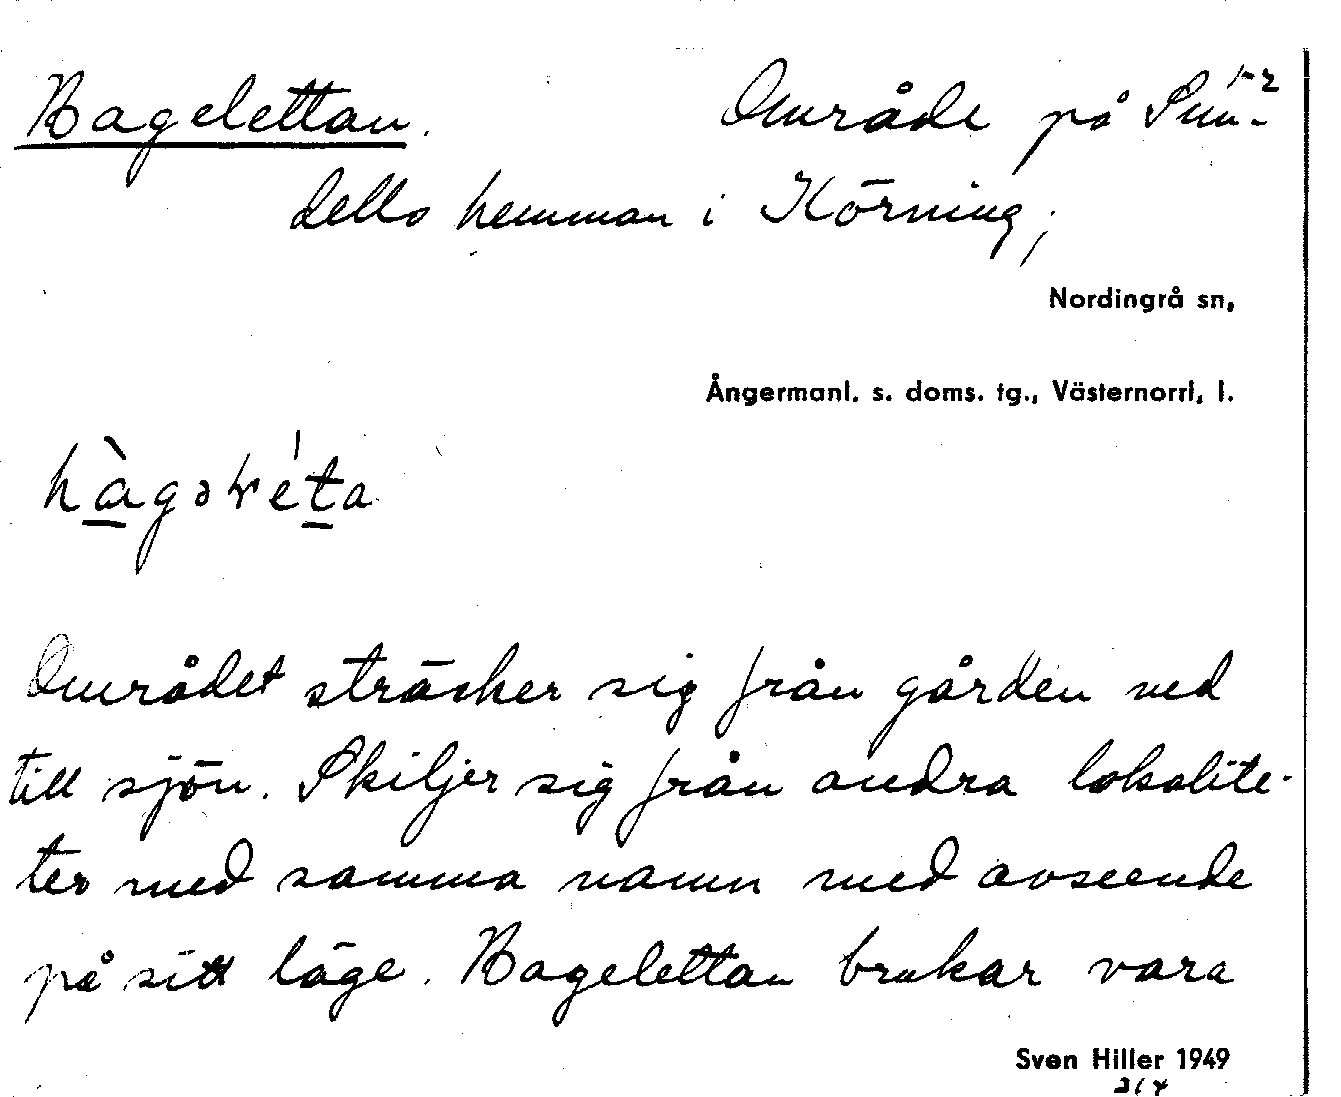 1-2
Hagelettan. Område på Sun-
dells hemman i Körning,
Nordingrå sn,
Ångermanl. s. doms. tg., Västernorrl. l.
Området sträcker sig från gården ned
till sjön. Skiljer sig från andra lokalite-
ter med samma namn med avseende
på sitt läge. Hagelettan brukar vara
Sven Hiller 1949